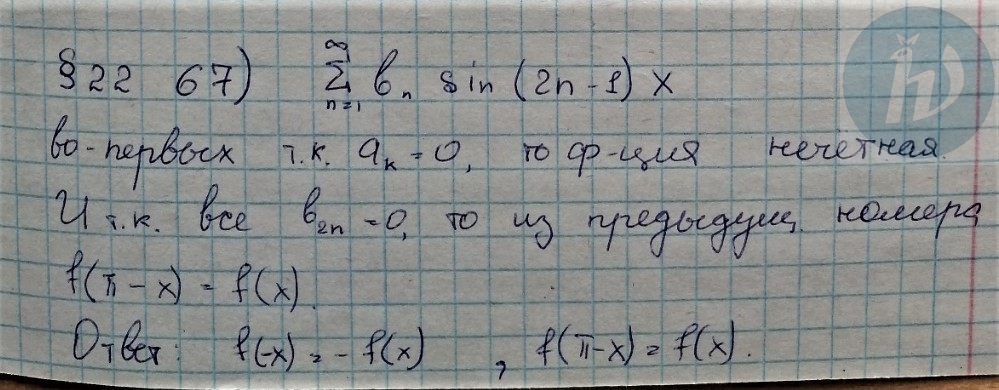 §22 67) ∞ Σ n=1 bₙ sin (2n-1) x
во-первых т.к. aₖ=0, то ф-ция нечётная.
И т.к. все b₂ₙ=0, то из предыдущ. номера
f(π-x) = f(x).
Ответ: f(-x) = -f(x) , f(π-x) = f(x).